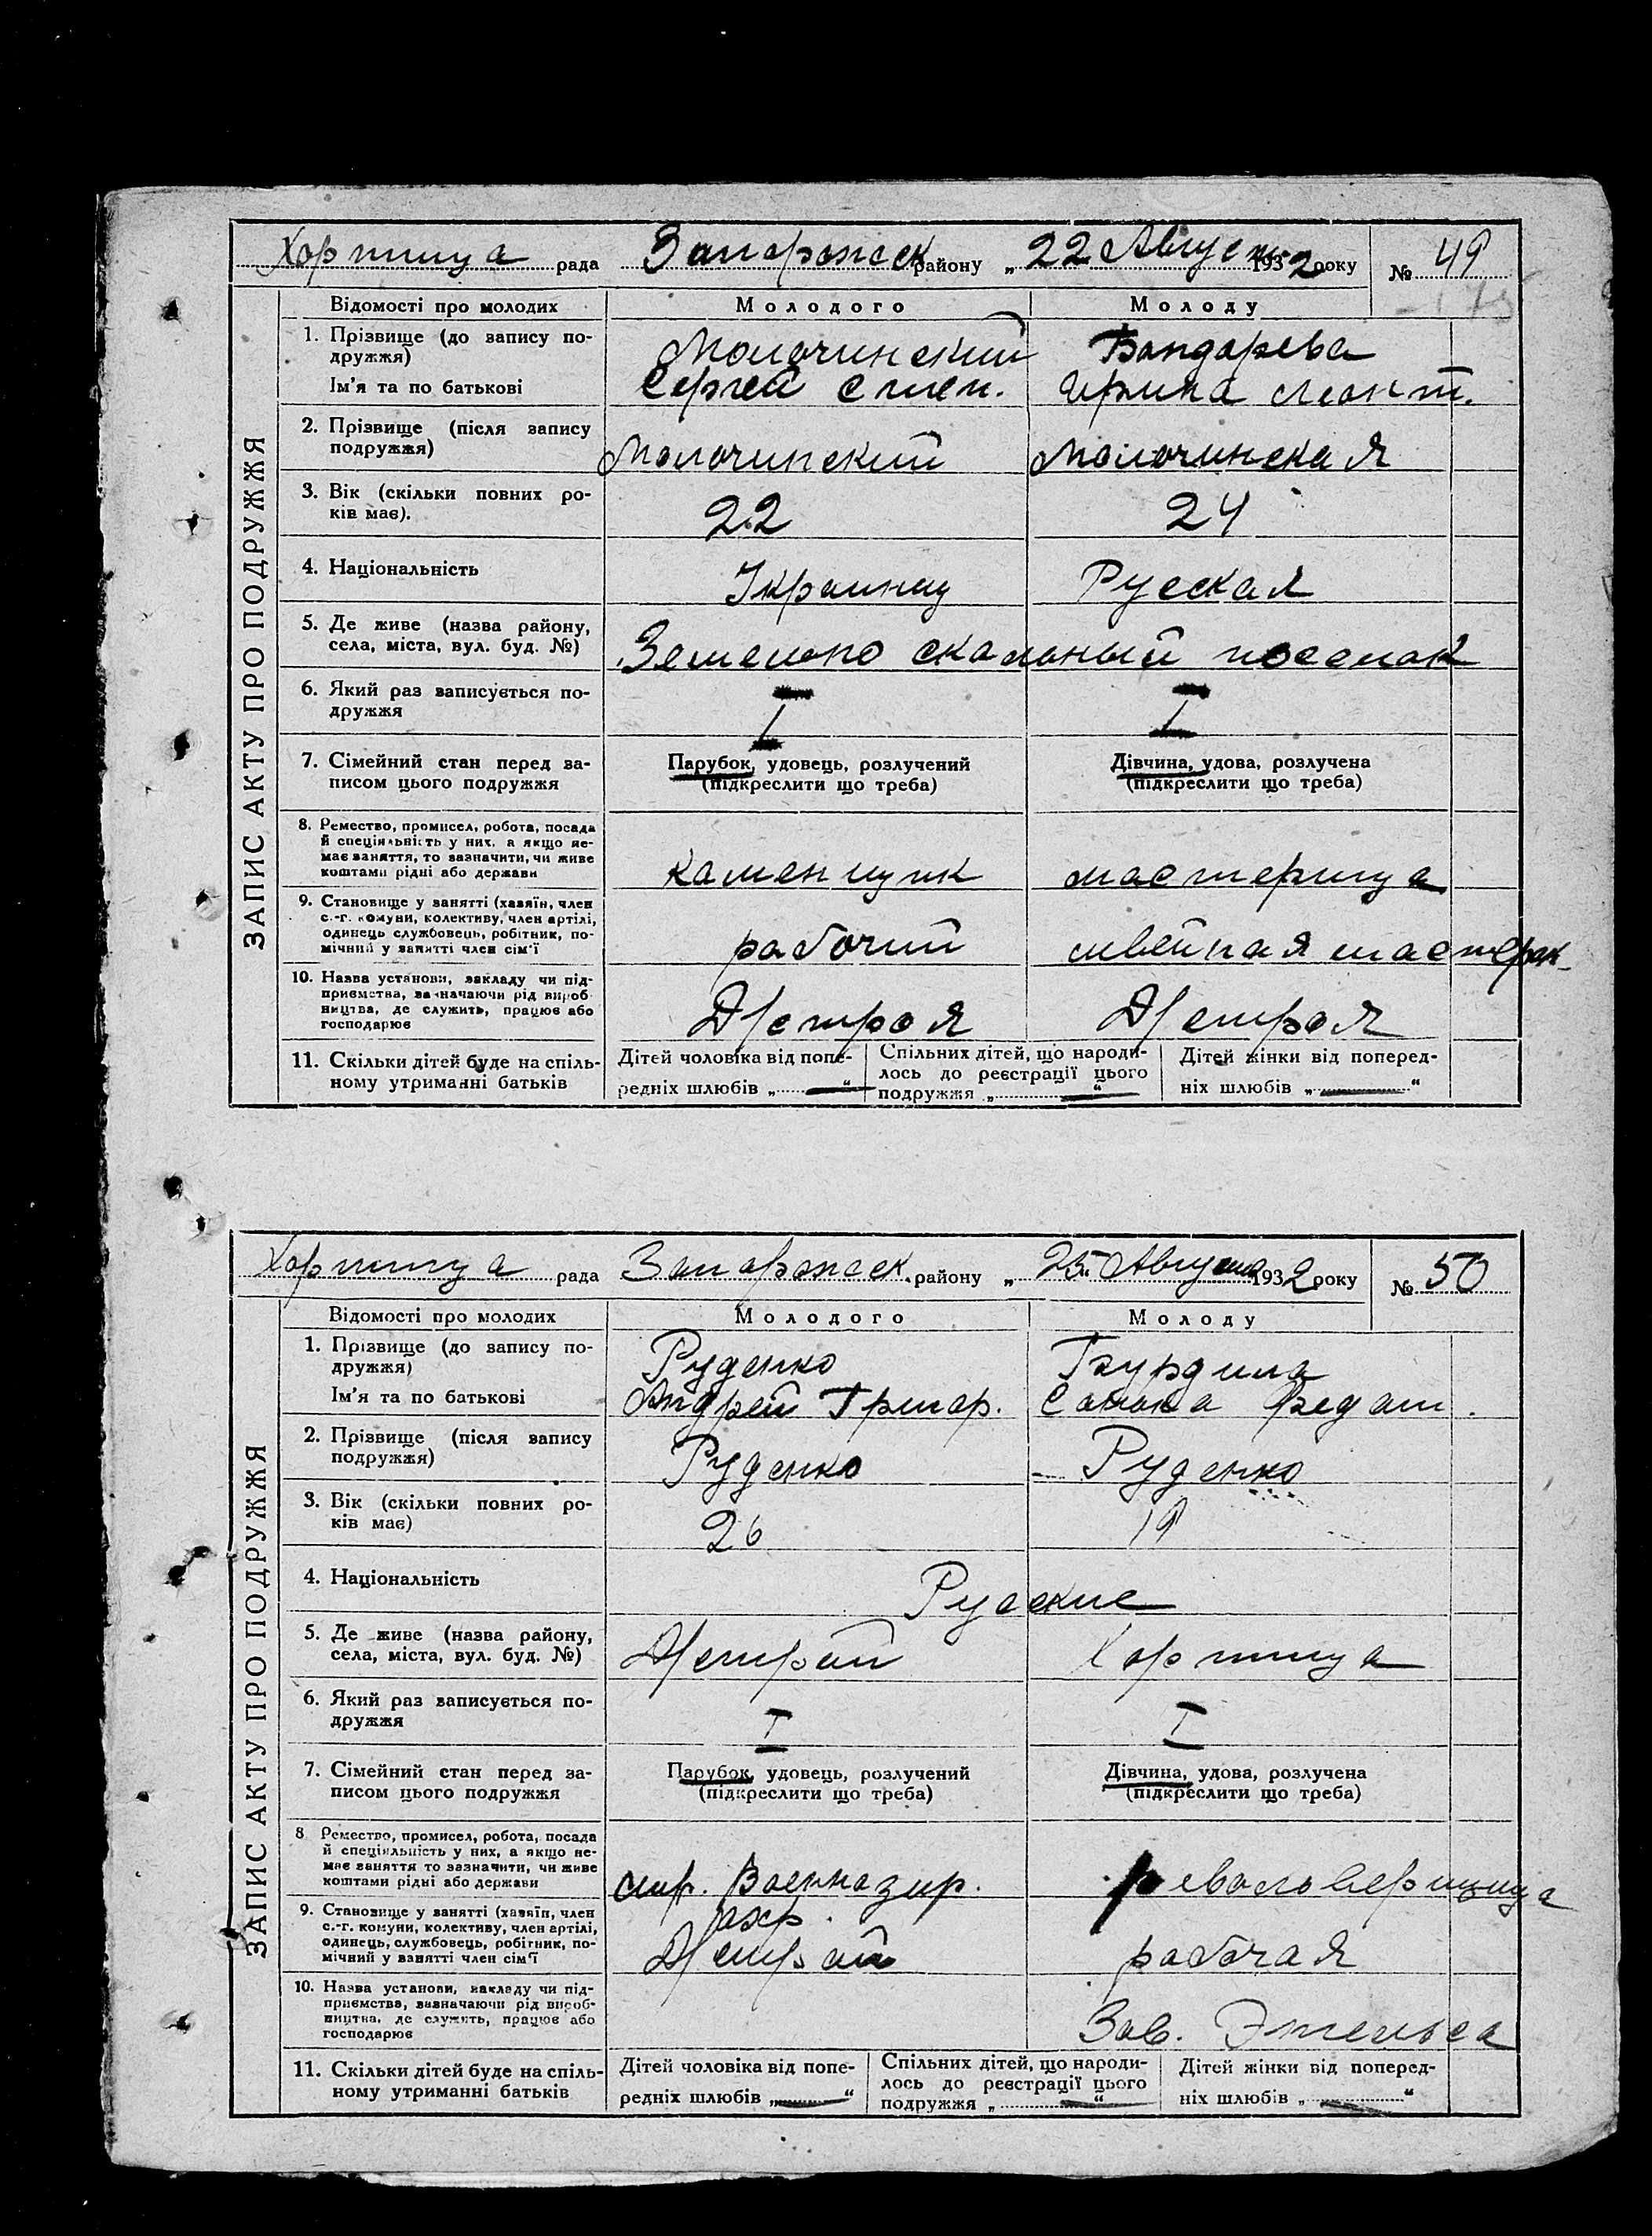 Хортица рада Запорожск району „ 22 Август 1932 року № 49
Відомості про молодих Молодого Молоду
1. Прізвище (до запису по- Молочинский Бондарева
дружжя)
Ім'я та по батькові Сергей Степ. Ирина Леонт.
2. Прізвище (після запису
подружжя) Молочинский Молочинская
3. Вік (скільки повних ро-
ків має). 22 24
4. Національність Украинец Руская
5. Де живе (назва району,
села, міста, вул. буд. №) скальный поселок
6. Який раз записується по- I I
дружжя
7. Сімейний стан перед за- Парубок, удовець, розлучений Дівчина, удова, розлучена
писом цього подружжя (підкреслити що треба) (підкреслити що треба)
8. Ремество, промисел, робота, посада
й спеціяльність у них, а якщо не-
має заняття, то зазначити, чи живе
коштами рідні або держави каменщик мастерица
9. Становище у занятті (хазяїн, член
с.-г. комуни, колективу, член артілі,
одинець службовець, робітник, по-
мічний у занятті член сім'ї рабочий швейная мастерск
10. Назва установи, закладу чи під-
приємства, зазначаючи рід вироб-
ництва, де служить, працює або
господарює
11. Скільки дітей буде на спіль- Дітей чоловіка від попе- Спільних дітей, що народи- Дітей жінки від поперед-
ному утриманні батьків редніх шлюбів „ — “ лось до реєстрації цього ніх шлюбів „ — “
подружжя „ — “
ЗАПИС АКТУ ПРО ПОДРУЖЖЯ
Хортица рада Запорожск. району „ 25 Августа 1932 року № 50
Відомості про молодих Молодого Молоду
1. Прізвище (до запису по- Руденко
дружжя)
Ім'я та по батькові Андрей Григор. Федот.
2. Прізвище (після запису
подружжя) Руденко Руденко
3. Вік (скільки повних ро-
ків має) 26 19
4. Національність Руские
5. Де живе (назва району,
села, міста, вул. буд. №) Хортица
6. Який раз записується по- I I
дружжя
7. Сімейний стан перед за- Парубок, удовець, розлучений Дівчина, удова, розлучена
писом цього подружжя (підкреслити що треба) (підкреслити що треба)
8. Ремество, промисел, робота, посада
й спеціяльність у них, а якщо не-
має заняття то зазначити, чи живе
коштами рідні або держави револьверщица
9. Становище у занятті (хазяїн, член
с.-г. комуни, колективу, член артілі,
одинець, службовець, робітник, по-
мічний у занятті член сім'ї рабочая
10. Назва установи, закладу чи під-
приємства, зазначаючи рід вироб-
ництва, де служить, працює або
господарює Зав. Энгельса
11. Скільки дітей буде на спіль- Дітей чоловіка від попе- Спільних дітей, що народи- Дітей жінки від поперед-
ному утриманні батьків редніх шлюбів „ — “ лось до реєстрації цього ніх шлюбів „ — “
подружжя „ — “
ЗАПИС АКТУ ПРО ПОДРУЖЖЯ